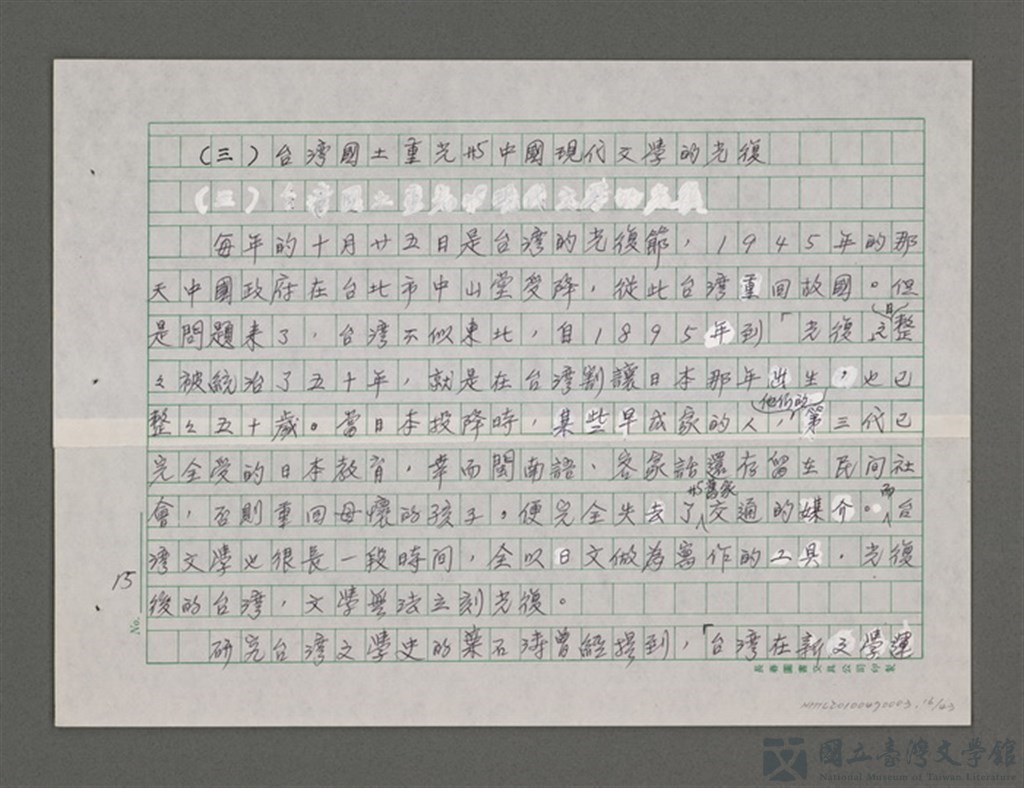 (三)台湾國土重光與中國現代文學的光復
每年的十月廿五日是台湾的光復節，1945年的那
天中國政府在台北市中山堂受降，從此台湾重回故國。但
是問題来了，台湾不似東北，自1895年到「光復」之日整
々被統治了五十年，就是在台湾割讓日本那年出生，也已
整々五十歲。當日本投降時，某些早成家的人，他们的第三代已
完全受的日本教育，幸而閩南語、客家話還存留在民间社
會，否則重回母懷的孩子，便完全失去了與舊家交通的媒介。而台
湾文學也很長一段時间，全以日文做為寫作的工具，光復
後的台湾，文學無法立刻光復。
15
No.
研究台湾文學史的葉石涛曾經提到，「台湾在新文學運
長春圖書文具公司印製
國立臺灣文學館
National Museum of Taiwan Literature